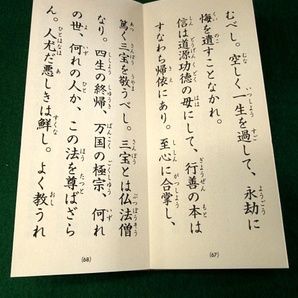 むべし。空しく一生を過して、永劫に
悔を遺すことなかれ。
信は道源功徳の母にして、行善の本は
すなわち帰依にあり。至心に合掌し、
(67)
篤く三宝を敬うべし。三宝とは仏法僧
なり。四生の終帰、万国の極宗、何れ
の世、何れの人か、この法を尊ばざら
ん。人尤だ悪しきは鮮し。よく教うれ
(68)